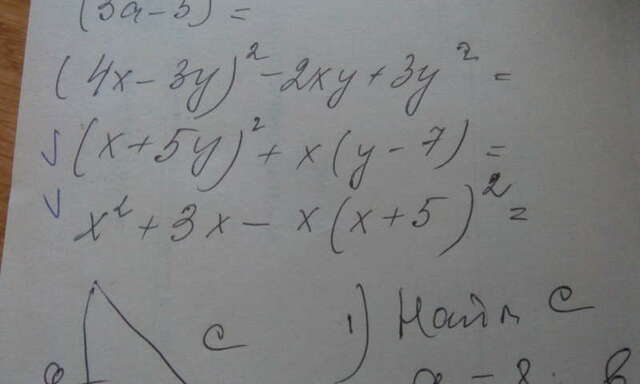 (3a-5) =
(4x - 3y)² - 2xy + 3y² =
√ (x + 5y)² + x(y - 7) =
√ x² + 3x - x(x + 5)² =
c 1) Найти c
a = 8;